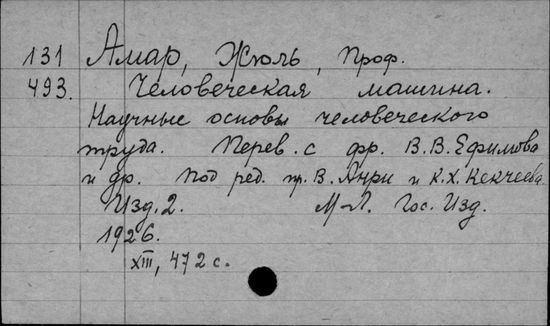 131 Амар, Жюль, Проф.
493. Человеческая машина.
Научные основы человеческого
труда. Перев. с фр. В.В.Ефимова
и др. Под ред. пр. В. Анри и К.Х. Кекчеева.
Изд. 2. М-Л. Гос. Изд.
1926.
XIII, 472 с.